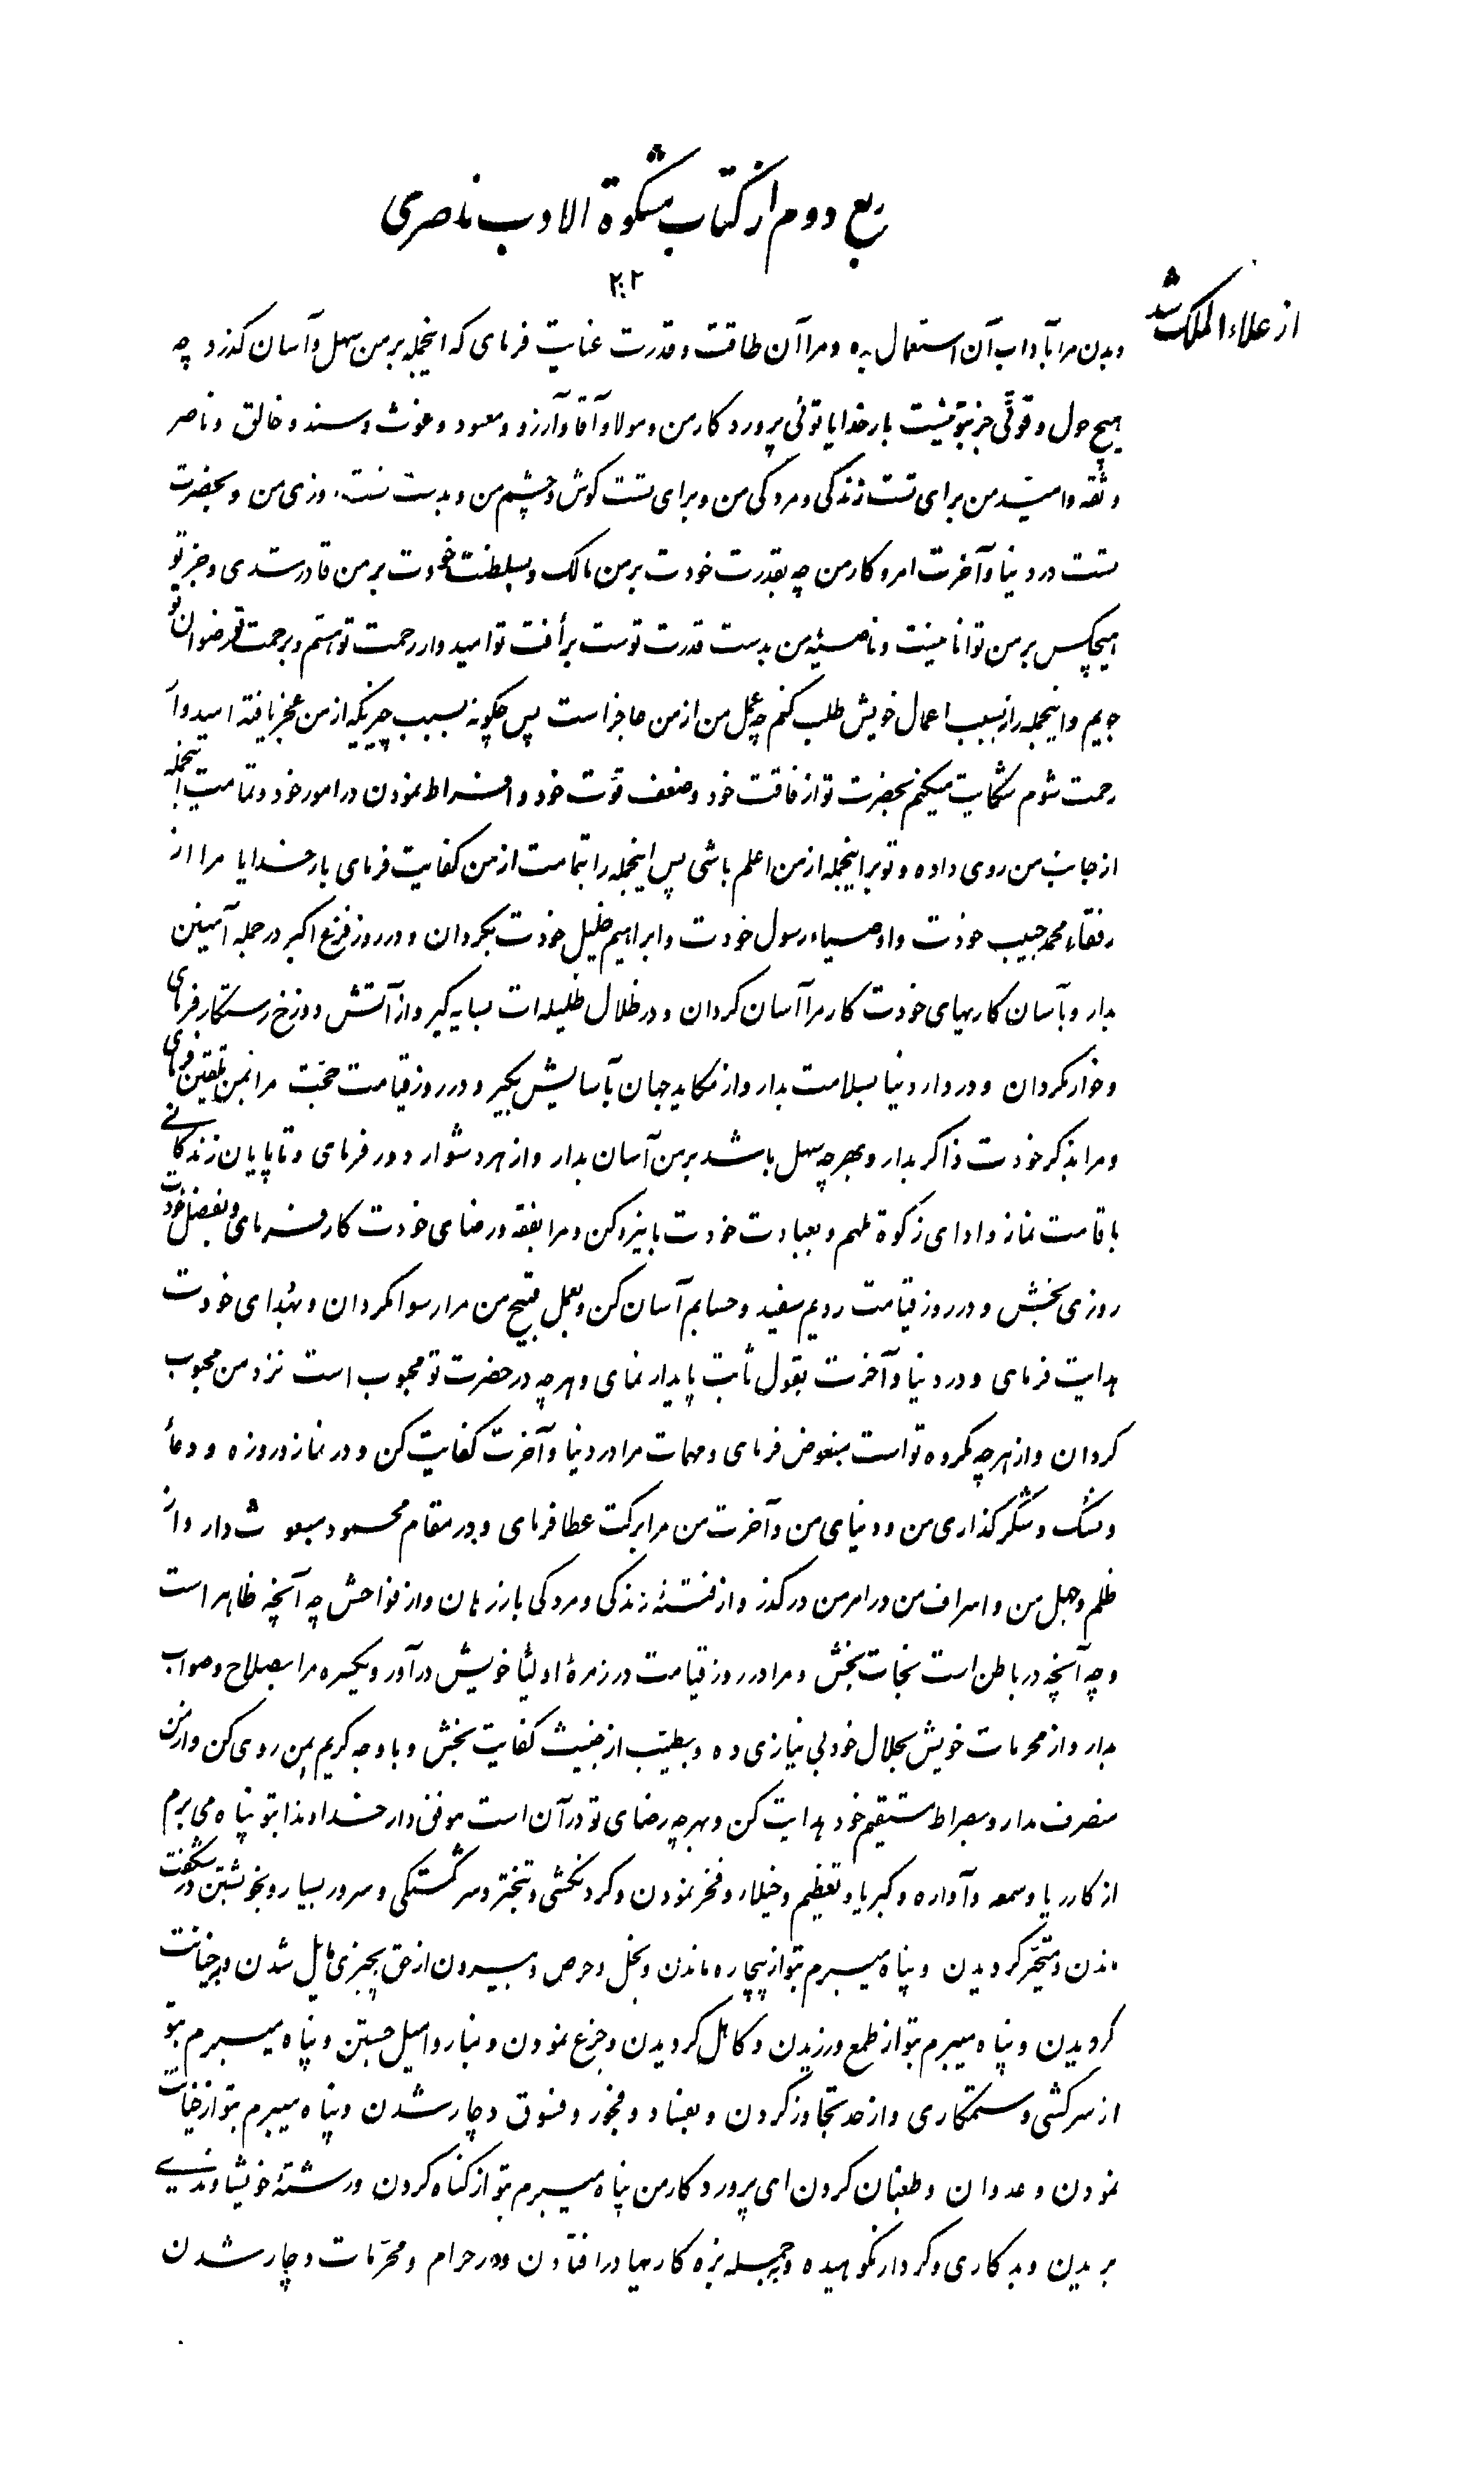 ربع دوم از کتاب مشکوة الادب ناصری
۲۰۲
از علاء الملک شد
وبدن مرا بآداب آن استعمال بده ومرا آن طاقت وقدرت عنایت فرمای که اینجمله بر من سهل وآسان کذرد چه
هیچ حول وقوتی جز بتو نیست بار خدایا توئی پروردکار من ومولا وآقا وآرزو ومعبود وغوث وسند وخالق وناصر
وثقه وامید من برای تست زندکی ومردکی من وبرای تست کوش وچشم من وبدست تست روزی من وبحضرت
تست در دنیا وآخرت امر وکار من چه بقدرت خودت بر من مالک وبسلطنت خودت بر من قادر شدی وجز تو
هیچکس بر من توانا نیست وناصیهٔ من بدست قدرت توست برأفت تو امیدوار رحمت تو هستم وبرحمت تو رضوان تو
جویم واینجمله را نه بسبب اعمال خویش طلب کنم چه عمل من از من عاجز است پس چکونه بسبب چیزیکه از من عجز یافته امیدوار
رحمت شوم شکایت میکنم بحضرت تو از فاقت خود وضعف قوّت خود وافراط نمودن در امور خود وتمامت اینجمله
از جانب من روی داده وتو بر اینجمله از من اعلم باشی پس اینجمله را بتمامت از من کفایت فرمای بار خدایا مرا از
رفقاء محمد حبیب خودت واوصیاء رسول خودت وابراهیم خلیل خودت بکردان ودر روز فزع اکبر در جمله آمنین
بدار وبآسان کاریهای خودت کار مرا آسان کردان ودر ظلال ظلیله‌ات بسایه کیر واز آتش دوزخ رستکار فرمای
وخوار مکردان ودر دار دنیا بسلامت بدار واز مکاید جهان بآسایش بکیر ودر روز قیامت حجّت مرا بمن تلقین فرمای
ومرا بذکر خودت ذاکر بدار وبهر چه سهل باشد بر من آسان بدار واز هر دشوار دور فرمای وتا پایان زندکانی
باقامت نماز وادای زکوة ملهم وبعبادت خودت بانیرو کن ومرا بفقه ورضای خودت کار فرمای وبفضل خودت
روزی بخش ودر روز قیامت رویم سفید وحسابم آسان کن وبعمل قبیح من مرا رسوا مکردان وبهدای خودت
هدایت فرمای ودر دنیا وآخرت بقول ثابت پایدار نمای وهر چه در حضرت تو محبوب است نزد من محبوب
کردان واز هر چه مکروه تو است مبغوض فرمای ومهمات مرا در دنیا وآخرت کفایت کن ودر نماز وروزه ودعا
ونسک وشکر کذاری من ودنیای من وآخرت من مرا برکت عطا فرمای ودر مقام محمود مبعوث دار واز
ظلم وجهل من واسراف من در امر من در کذر واز فتنهٔ زندکی ومردکی باز رهان واز فواحش چه آنچه ظاهر است
وچه آنچه در باطن است نجات بخش ومرا در روز قیامت در زمرهٔ اولیا خویش در آور ویکسره مرا بصلاح وصواب
بدار واز محرمات خویش بحلال خود بی نیازی ده وبطیّب از خبیث کفایت بخش وبا وجه کریم بمن روی کن واز من
منصرف مدار وبصراط مستقیم خود هدایت کن وبهر چه رضای تو در آن است موفق دار خداوندا بتو پناه می برم
از کار ریا وسمعه وآوازه وکبریا وتعظیم وخیلاء وفخر نمودن وکردنکشی وتبختر وسرکشتکی وسرور بسیار وبخویشتن در شکفت
ماندن ومتحیّر کردیدن وپناه میبرم بتو از بیچاره ماندن وبخل وحرص وبیرون از حق بچیزی مایل شدن وبخیانت
کردیدن وپناه میبرم بتو از طمع ورزیدن وکاهل کردیدن وجزع نمودن وبناروا میل جستن وپناه میبرم بتو
از سرکشی وستمکاری واز حد تجاوز کردن وبعناد وفجور وفسوق دچار شدن وپناه میبرم بتو از خیانت
نمودن وعدوان وطغیان کردن ای پروردکار من پناه میبرم بتو از کناه کردن ورشتهٔ خویشاوندی
بریدن وبدکاری وکردار نکوهیده وجمله بزه کاریها در افتادن ودر حرام ومحرّمات دچار شدن